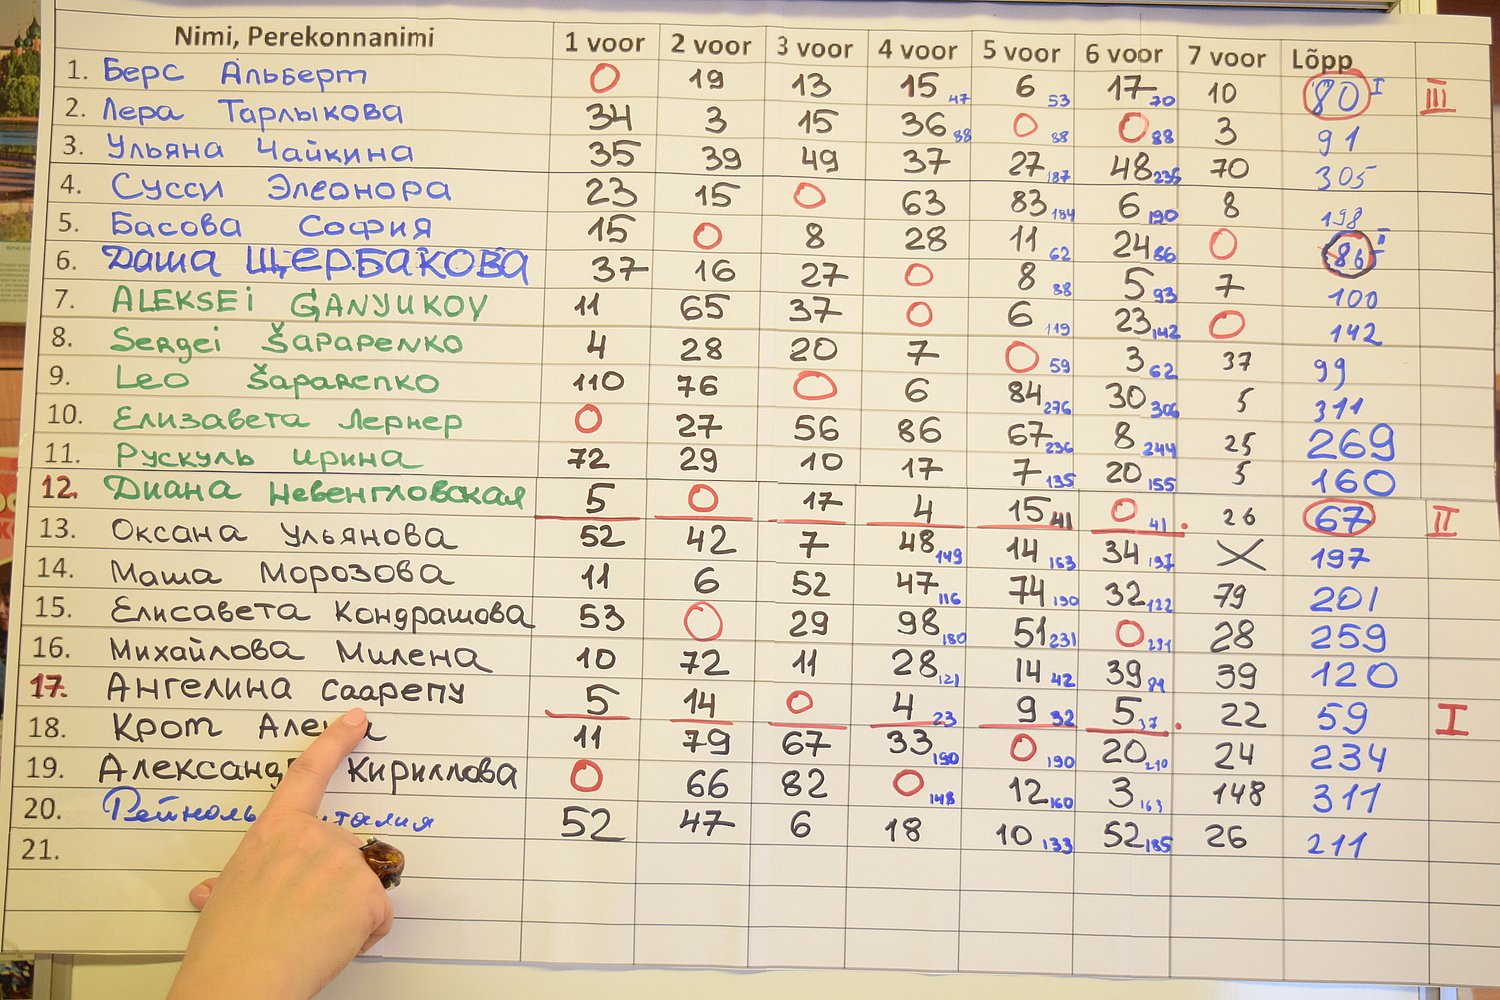 Nimi, Perekonnanimi 1 voor 2 voor 3 voor 4 voor 5 voor 6 voor 7 voor Lõpp
1. Берс Альберт 0 19 13 15 47 6 53 17 70 10 80 I III
2. Лера Тарлыкова 34 3 15 36 88 0 88 0 88 3 91
3. Ульяна Чайкина 35 39 49 37 27 187 48 235 70 305
4. Сусси Элеонора 23 15 0 63 83 184 6 190 8 198
5. Басова София 15 0 8 28 11 62 24 86 0 86 II
6. Даша ЩЕРБАКОВА 37 16 27 0 8 88 5 93 7 100
7. ALEKSEI GANYUKOV 11 65 37 0 6 119 23 142 0 142
8. Sergei Šaparenko 4 28 20 7 0 59 3 62 37 99
9. Leo Šaparenko 110 76 0 6 84 276 30 306 5 311
10. Елизавета Лернер 0 27 56 86 67 236 8 244 25 269
11. Рускуль Ирина 72 29 10 17 7 135 20 155 5 160
12. Диана Невенгловская 5 0 17 4 15 41 0 41 26 67 II
13. Оксана Ульянова 52 42 7 48 149 14 163 34 197 X 197
14. Маша Морозова 11 6 52 47 116 74 190 32 122 79 201
15. Елисавета Кондрашова 53 0 29 98 180 51 231 0 231 28 259
16. Михайлова Милена 10 72 11 28 121 14 42 39 81 39 120
17. Ангелина Саарепу 5 14 0 4 23 9 32 5 37 22 59 I
18. Крот 11 79 67 33 190 0 190 20 210 24 234
19. Кириллова 0 66 82 0 148 12 160 3 163 148 311
20. 52 47 6 18 10 133 52 185 26 211
21.